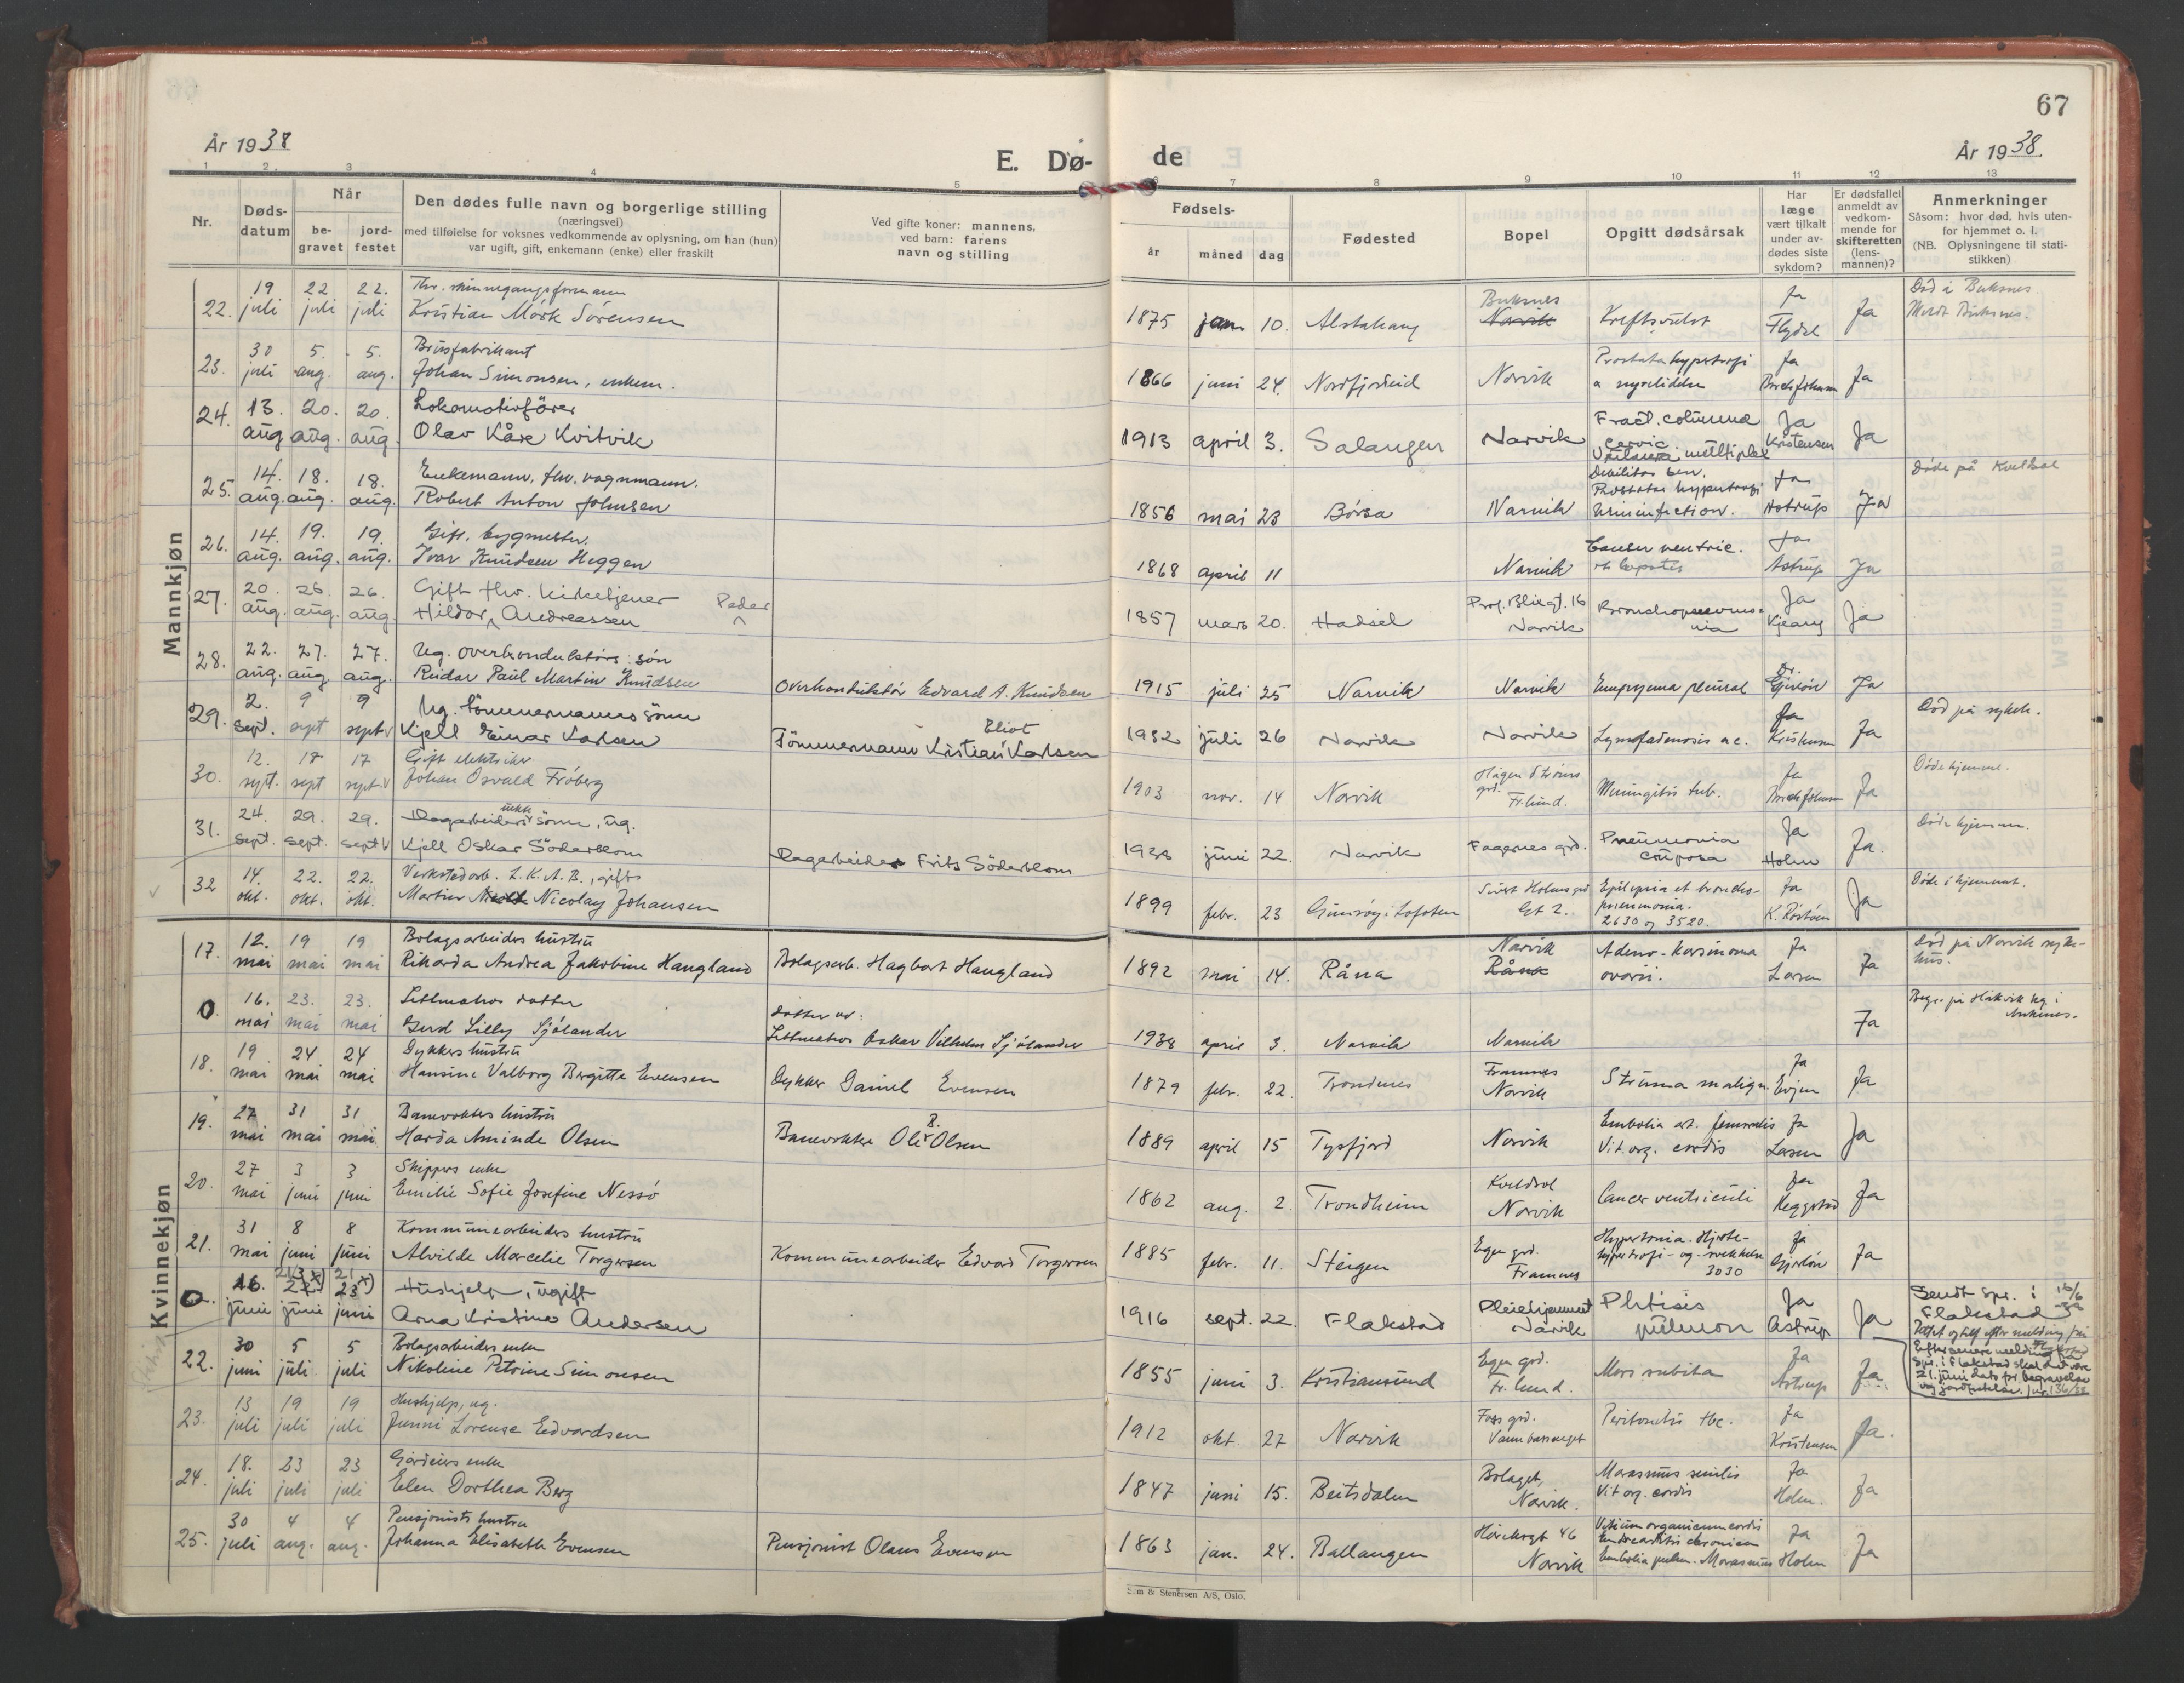 67
År 1938
E. Dø-
de
År 1938.
1 2. 3 4 5 6 7 8 9 10 11 12 13
Nr.
Døds-
datum
Når
be-
gravet
jord-
festet
Den dødes fulle navn og borgerlige stilling
(næringsvei)
med tilføielse for voksnes vedkommende av oplysning, om han (hun)
var ugift, gift, enkemann (enke) eller fraskilt
Ved gifte koner: mannens,
ved barn: farens
navn og stilling
Fødsels-
år
måned
dag
Fødested
Bopel
Opgitt dødsårsak
Har
læge
vært tilkalt
under av-
dødes siste
sykdom?
Er dødsfallet
anmeldt av
vedkom-
mende for
skifteretten
(lens-
mannen)?
Anmerkninger
Såsom: hvor død, hvis uten-
for hjemmet o. l.
(NB. Oplysningene til stati-
stikken)
Mannkjøn
22. 19 juli 22 juli 22. juli
Kristian Mörk Sörensen
1875 jan 10. Alstahaug Buksnes Narvik Kreftsvulst Ja Flydal Ja
Død i Buksnes
Meldt Buksnes.
23. 30 juli 5. aug. 5. aug.
Brusfabrikant
Johan Simonsen, enkem.
1866 juni 24. Nordfjordeid Narvik
Prostatahypertrofi
a nyrelidelse
Ja Ja
24. 13. aug 20. aug. 20. aug.
Lokomotivfører
Olav Kåre Kvitvik
1913 april 3. Salangen Narvik
Fract. columna
cervic.
multiplex
Ja Kristensen Ja
25. 14. aug. 18. aug. 18. aug.
Enkemann, fhv. vognmann.
Robert Anton Johnsen
1856 mai 23 Börsa Narvik
Debilitas sen.
Prostata hypertrofi
Urininfection.
Ja Astrup Ja
Döde på Kveldsol
26. 14. aug. 19. aug. 19. aug.
Gift, bygmester.
Ivar Knudsen Heggen
1868 april 11 Narvik
Cancer ventric.
et hepatis
Ja Astrup Ja
27. 20. aug. 26. aug. 26. aug
Gift fhv. kirketjener Peder
Hildor Andreassen
1857 mars 20. Hadsel
Prof. Bliegt. 16
Narvik
Bronchopneumo-
nia
Ja Kjeang Ja
28. 22. aug. 27. aug 27. aug.
Ug. overkonduktörs sön
Reidar Paul Martin Knudsen
Overkonduktör Edvard A. Knudsen
1915 juli 25 Narvik Narvik Empyema pleural Dr. Gjerlöv Ja
29. 2. sept. 9 sept 9 sept
Ug. tömmermanns sönn
Kjell Einar Karlsen
Eliot
Tömmermann Kristian Karlsen
1932 juli 26 Narvik Narvik Lymfadenosis ac. Ja Kristensen Ja
Död på sykeh.
30. 12. sept. 17 sept 17 sept
Gift elektriker
Johan Osvald Fröberg
1903 nov. 14 Narvik
Hagen Ströms
grd.
Fr.lund.
Meningitis tub. Ja Ja
Döde hjemme.
31. 24. sept. 29. sept. 29. sept
Dagarbeiders sönn, ug.
Kjell Oskar Söderblom
Dagarbeider Frits Söderblom
1938 juni 22. Narvik Fagernes grd.
Pneumonia
cruposa
Ja Holm Ja.
Döde hjemme.
32 14. okt. 22. okt. 22. okt.
Verkstedarb. L.K.A.B., gift
Martin Nicolay Johansen
1899 febr. 23 Gimsöy i Lofoten
Sivert Holms grd
Gt 2.
Epilepsia et broncho-
pneumonia.
2630 og 3520.
Ja K. Röstöen Ja
Döde i hjemmet.
Kvinnekjøn
17. 12. mai 19 mai 19 mai
Bolagsarbeiders hustru
Rikarda Andrea Jakobine Haugland
Bolagsarb. Hagbart Haugland
1892 mai 14. Råna Narvik Råna
Adeno-karsinoma
ovarii.
Ja Larsen Ja
Död på Narvik syke-
hus.
0. 16. mai 23. mai 23. mai
Lettmatros datter
Gerd Lilly Sjölander
datter av:
Lettmatros Oskar Vilhelm Sjölander
1938 april 3. Narvik Narvik Ja
Begr. på Håkvik kg. i
Ankenes.
18. 19 mai 24 mai 24 mai
Dykkers hustru
Hansine Valborg Bergitte Evensen
Dykker Daniel Evensen
1879 febr. 22. Trondenes
Framnes
Narvik
Struma malign. Ja Evjen Ja
19. 27 mai 31 mai 31 mai
Banevokters hustru
Harda Aminde Olsen
Banevokter Ole B. Olsen
1889 april 15 Tysfjord Narvik
Embolia art. femoralis
Vit. org. cordis
Ja Larsen Ja
20. 27 mai 3 juni 3 juni
Skippers enke
Emilie Sofie Josefine Nessö
1862 aug. 2. Trondheim
Kveldsol
Narvik
Cancer ventriculi Ja Heggstad Ja
21. 31 mai 8 juni 8 juni
Kommunearbeiders hustru
Alvilde Marcelie Torgersen
Kommunearbeider Edvard Torgersen
1885 febr. 11. Steigen
Egen grd.
Framnes
Hypertonia. Hjerte-
hypertrofi- og -svekkelse
3030
Ja Gjerlöv Ja
0. 16. juni 21/3 x) juni 21 x) 23 juni
Hushjelp, ugift
Arna Kristine Andersen
1916 sept. 22. Flakstad
Pleiehjemmet
Narvik
Phtisis
pulmon
Ja Astrup Ja
Sendt spr. i 16/6
Flakstad 38
Efter senere melding fra
spr. i Flakstad skal det være
21. juni dato for begravelse
og jordfestelse. jnr. 136/38
22. 30 juni 5 juli 5 juli
Bolagsarbeiders enke
Nikoline Petrine Simonsen
1855 juni 3. Kristiansund
Egen grd.
Fr. lund.
Mors subita Ja Astrup Ja
23. 13 juli 19 juli 19 juli
Hushjelp, ug.
Jenni Lorense Edvardsen
1912 okt. 27 Narvik
Foss grd.
Vannbassenget
Peritonitis tbc. Ja Kristensen Ja.
24. 18. juli 23 juli 23 juli
Gårdeiers enke
Elen Dorthea Berg
1847 juni 15. Beitsdalen
Bolaget,
Narvik.
Marasmus senilis
Vit org. cordis
Ja Holm. Ja
25. 30 juli 4 aug. 4 aug.
Pensjonists hustru
Johanna Elisabeth Evensen
Pensjonist Olaus Evensen
1863 jan. 24. Ballangen
46
Narvik
Vitium organicum cordis
Endocarditis chronica
Embolia pulm. Marasmus
Ja Holm Ja
Sem & Stenersen A/S, Oslo.